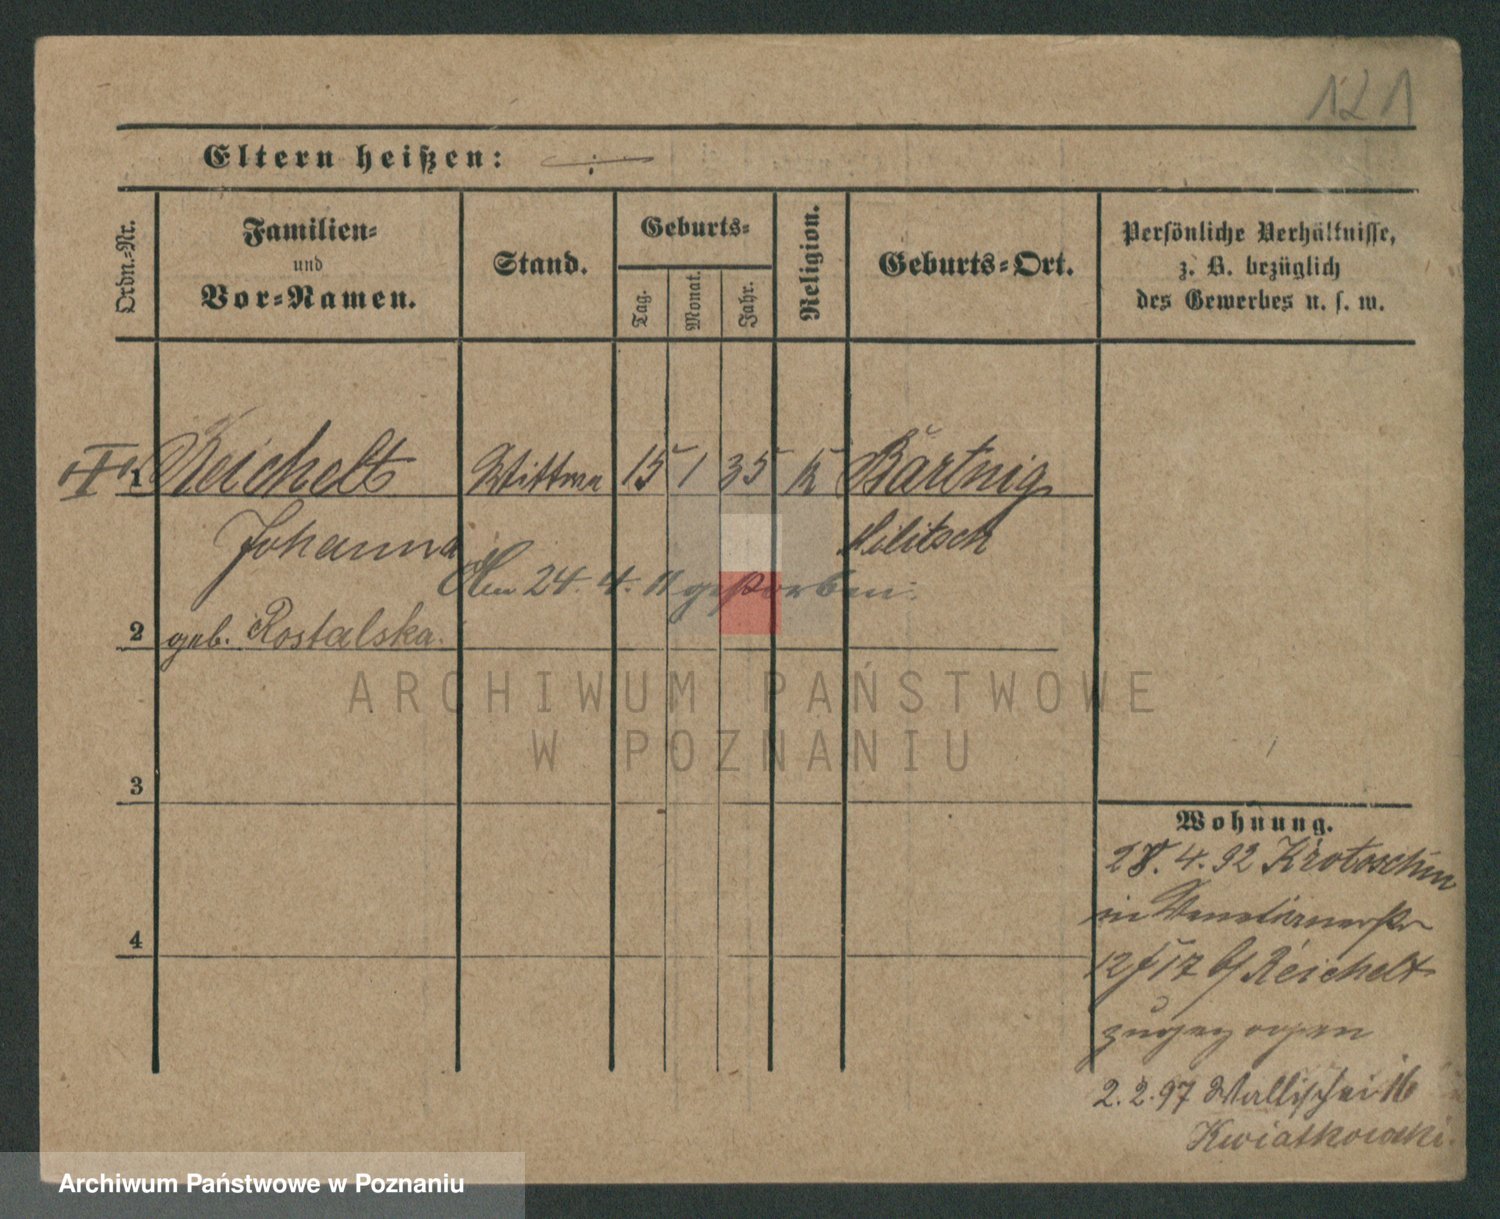 121
Eltern heißen: ·/·
Ordn.-Nr.
Familien-
und
Vor-Namen.
Stand.
Geburts-
Tag.
Monat.
Jahr.
Religion.
Geburts-Ort.
Persönliche Verhältnisse,
z. B. bezüglich
des Gewerbes u. s. w.
1 Reichelt Wittwe 15 1 35 K Bartnig
Johanna Militsch
Am 24. 4. 11 gestorben.
2 geb. Rostalska.
ARCHIWUM PAŃSTWOWE
W POZNANIU
3
4
Wohnung.
28. 4. 92 Krotoschin
in Venetianerstr
12/17 b/ Reichelt
zugezogen
2. 2. 97 Wallischei 16
Kwiatkowski.
Archiwum Państwowe w Poznaniu